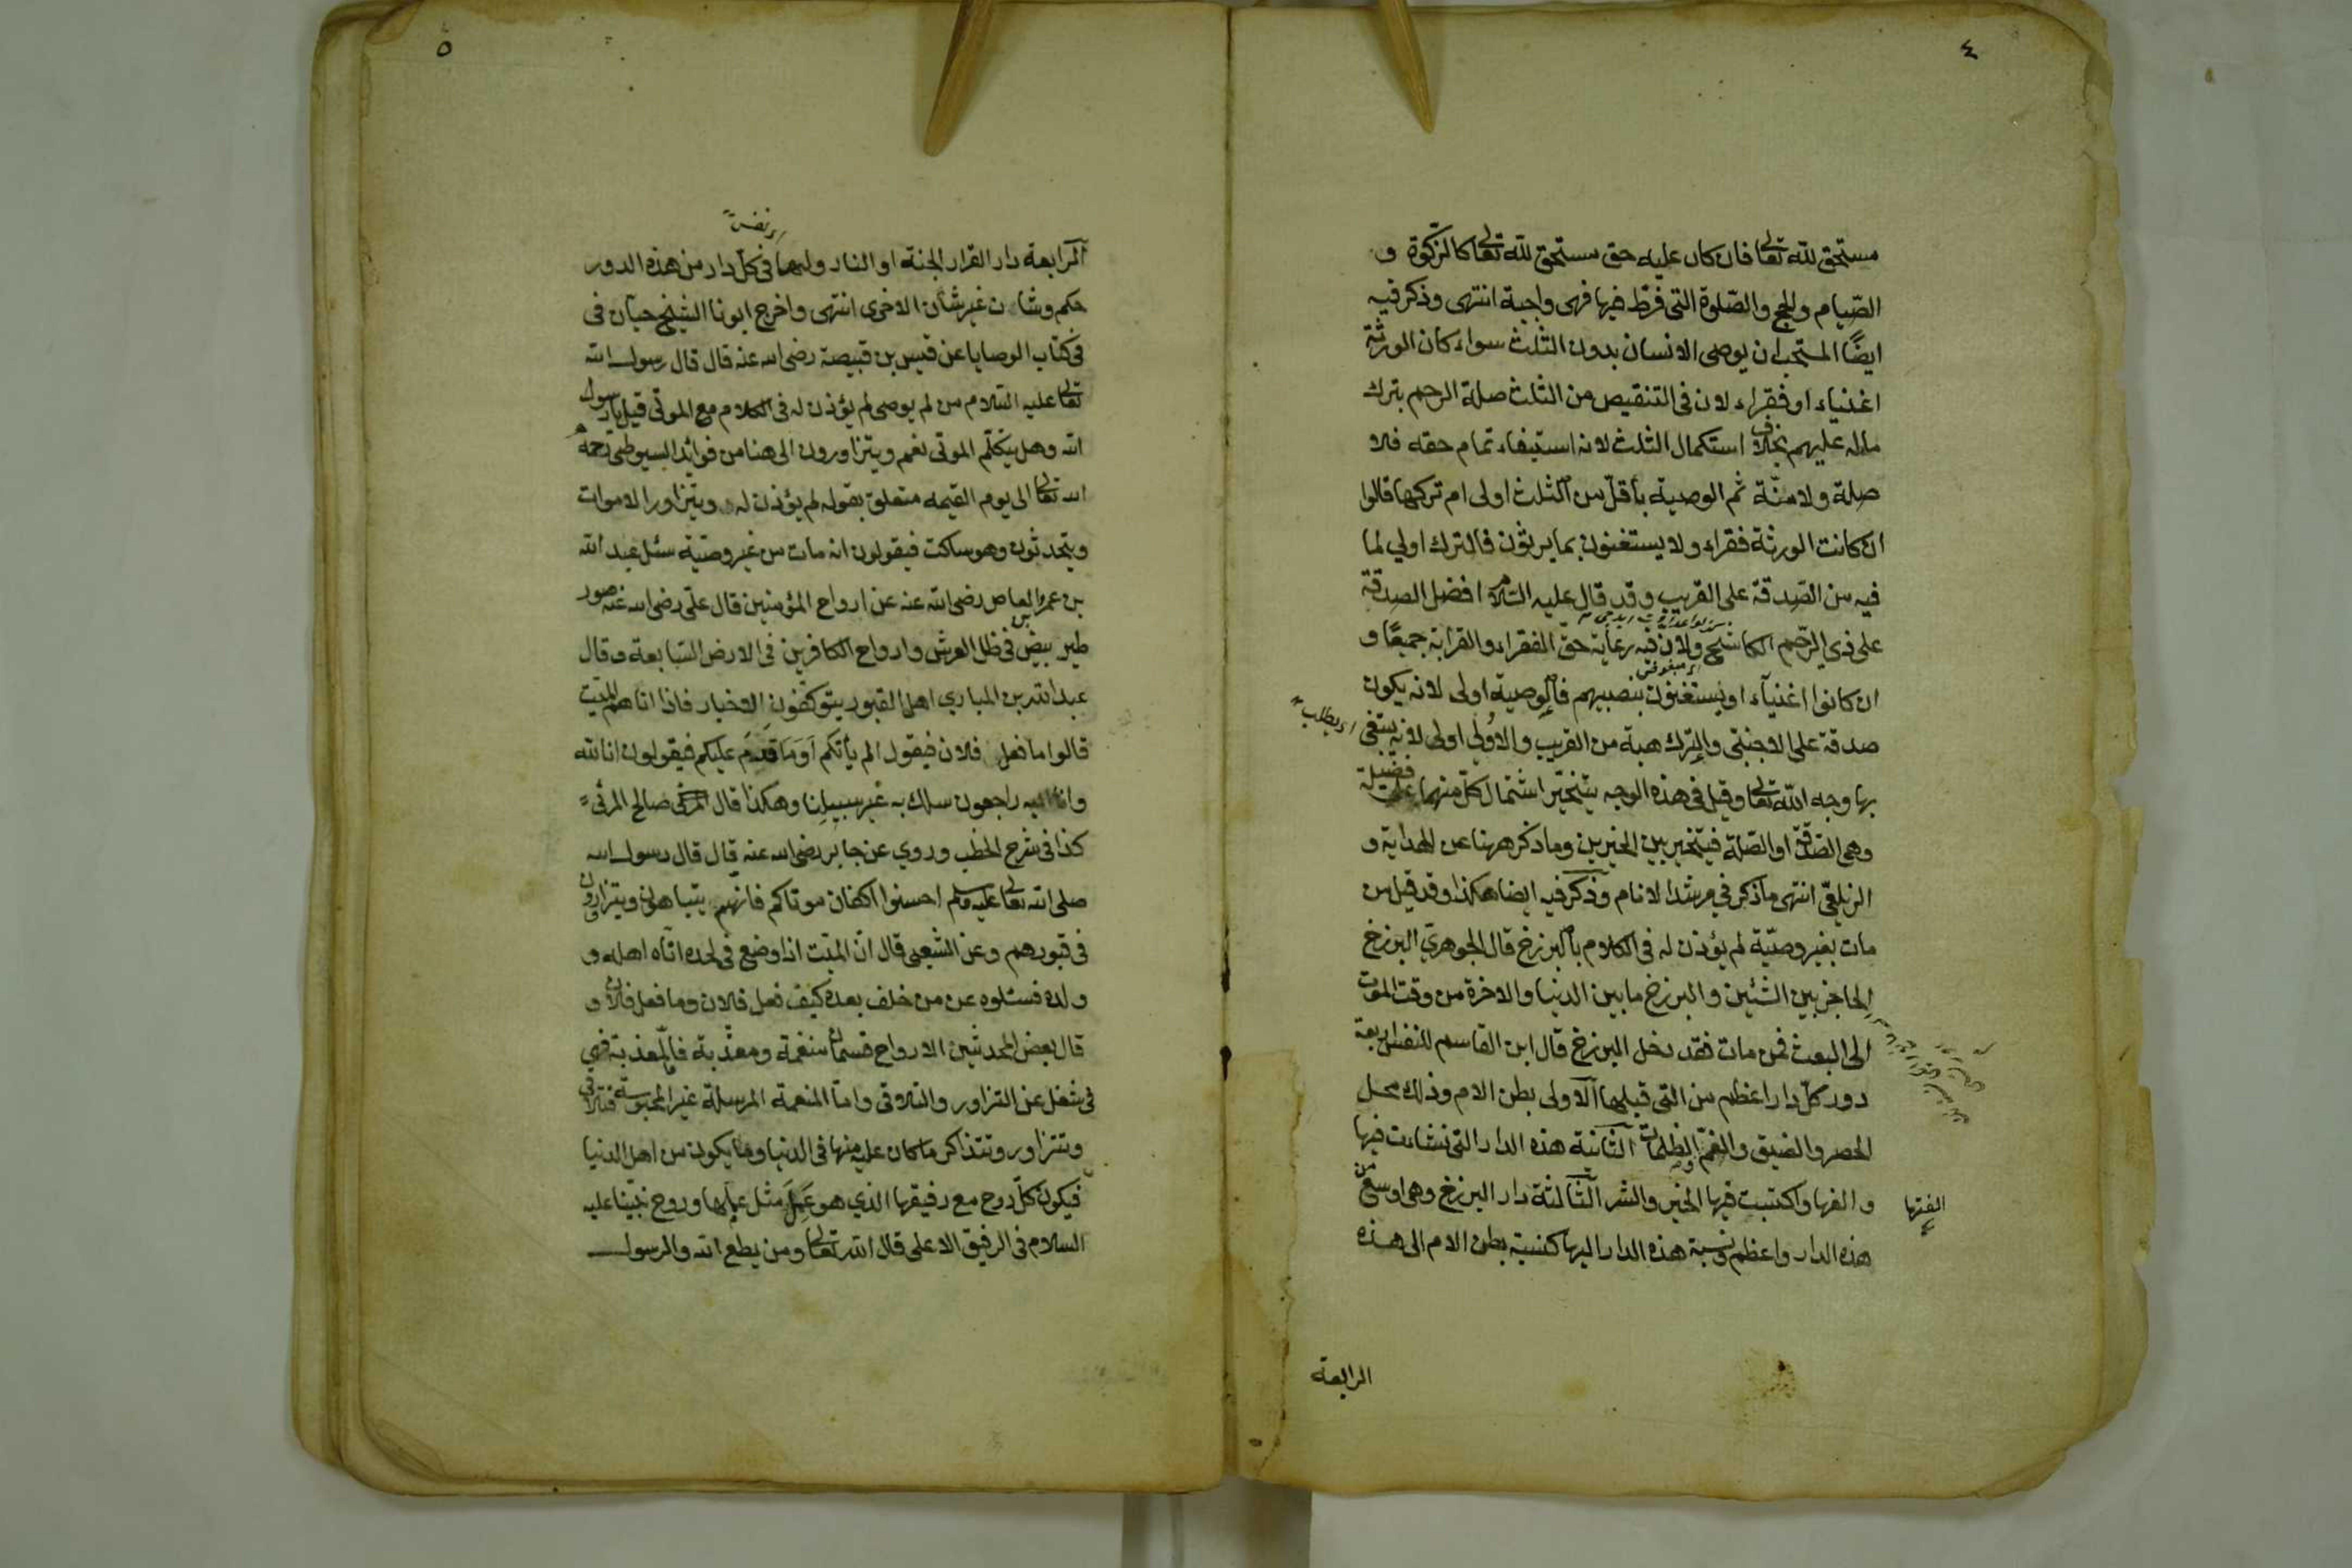 ٤
مستحق لله تعالى فان كان عليه حق مستحق لله تعالى كالزكوة و
الصيام والحج والصلوة التى فرط فيها فهى واجبة انتهى وذكر فيه
ايضًا المستحب ان يوصى الانسان بدون الثلث سواء كان الورثة
اغنياء او فقراء لان فى التنقيص من الثلث صلة الرحم بترك
ماله عليهم بخلاف استكمال الثلث لانه استيفاء تمام حقه فلا
صلة ولا منّة ثم الوصية بأقلّ من الثلث اولى ام تركها قالوا
ان كانت الورثة فقراء ولا يستغنون بما يرثون فالترك اولي لما
فيه من الصدقة على القريب وقد قال عليه السلام افضل الصدقة
على ذي الرّحم الكاشح ولان فيه رعاية حقّ الفقراء والقرابة جميعًا و
ان كانوا اغنيآء او يستغنون بنصيبهم فالوصية اولى لانه يكون
صدقة على الاجنبىّ والترك هبة من القريب والاولي اولى لانه يبتغى
اى يطلب
بها وجه الله تعالى وقيل فى هذه الوجه يتخيّر اشتمال كلّ منهما على فضيلة
وهى الصدقة او الصّلة فيتخير بين الخيرين وما ذكر ههنا عن الهداية و
الزيلعىّ انتهى ما ذكر في مرشد الانام وذكر فيه ايضا هكذا وقد قيل من
مات بغير وصيّة لم يؤذن له فى الكلام بالبرزخ قال الجوهري البرزخ
الحاجز بين الشئين والبرزخ ما بين الدنيا والاخرة من وقت الموت
الى البعث فمن مات فقد دخل البرزخ قال ابن القاسم للنفس اربعة
دور كلّ دار اعظم من التى قبلها الاولى بطن الام وذلك محل
الحصر والضيق والغمّ والظلمات الثانية هذه الدار التى نشأت فيها
والفها واكتسبت فيها الخير والشر الثالثة دار البرزخ وهى اوسع من
الفتها
هذه الدار واعظم ونسبة هذه الدار اليها كنسبة بطن الام الى هذه
الرابعة
٥
اى نفس
الرابعة دار القرار الجنة او النار ولها فى كلّ دار من هذه الدور
حكم وشان غير شأن الاخرى انتهى واخرج ابونا الشيخ حبان فى
فى كتاب الوصايا عن قيس بن قبيصة رضى الله عنه قال قال رسول الله
تعالى عليه السلام من لم يوصى لم يؤذن له فى الكلام مع الموتى قيل يا رسول
الله وهل يتكلّم الموتى نعم ويتزاورون الى هنا من فوائد السيوطى رحمه
الله تعالى الى يوم القيمه متعلق بقوله لم يؤذن له ويتزاور الاموات
ويتحدثون وهو ساكت فيقولون انه مات من غير وصيّة سئل عبد الله
بن عمرو العاص رضى الله عنه عن ارواح المؤمنين قال على رضى الله عنه صور
طير بيض فى ظل العرش وارواح الكافرين فى الارض السّابعة وقال
عبد الله بن المباري اهل القبور يتوكفون الاخبار فاذا اتاهم الميّت
قالوا ما فعل فلان فيقول الم يأتكم اَوَمَا قَدِمَ عليكم فيقولون انا لله
وانا اليه راجعون سلك به غير سبيلنا وهكذا قال صالح المرّى
كذا فى شرح الخطب وروي عن جابر رضى الله عنه قال قال رسول الله
صلى الله تعالى عليه وسلم احسنوا اكفان موتاكم فانهم يتباهون ويتزارون
فى قبورهم وعن الشعبى قال انّ الميّت اذا وضع فى لحده اتاه اهله و
ولده فسئلوه عن من خلف بعده كيف فعل فلان وما فعل فلان و
قال بعض المحدثين الارواح قسمان منعمة ومعذّبة فالمعذبة فهى
فى شغل عن التزاور والتلاقى وامّا المنعمة المرسلة غير المحبوسة فتلاقى
وتتزاور وتتذاكر ما كان عليه منها فى الدنيا وما يكون من اهل الدنيا
فيكون كلّ روح مع رفيقها الذي هو عَمِلَ مثل عملها وروح نبيّنا عليه
السلام فى الرفيق الاعلى قال الله تعالى ومن يطع الله والرسول